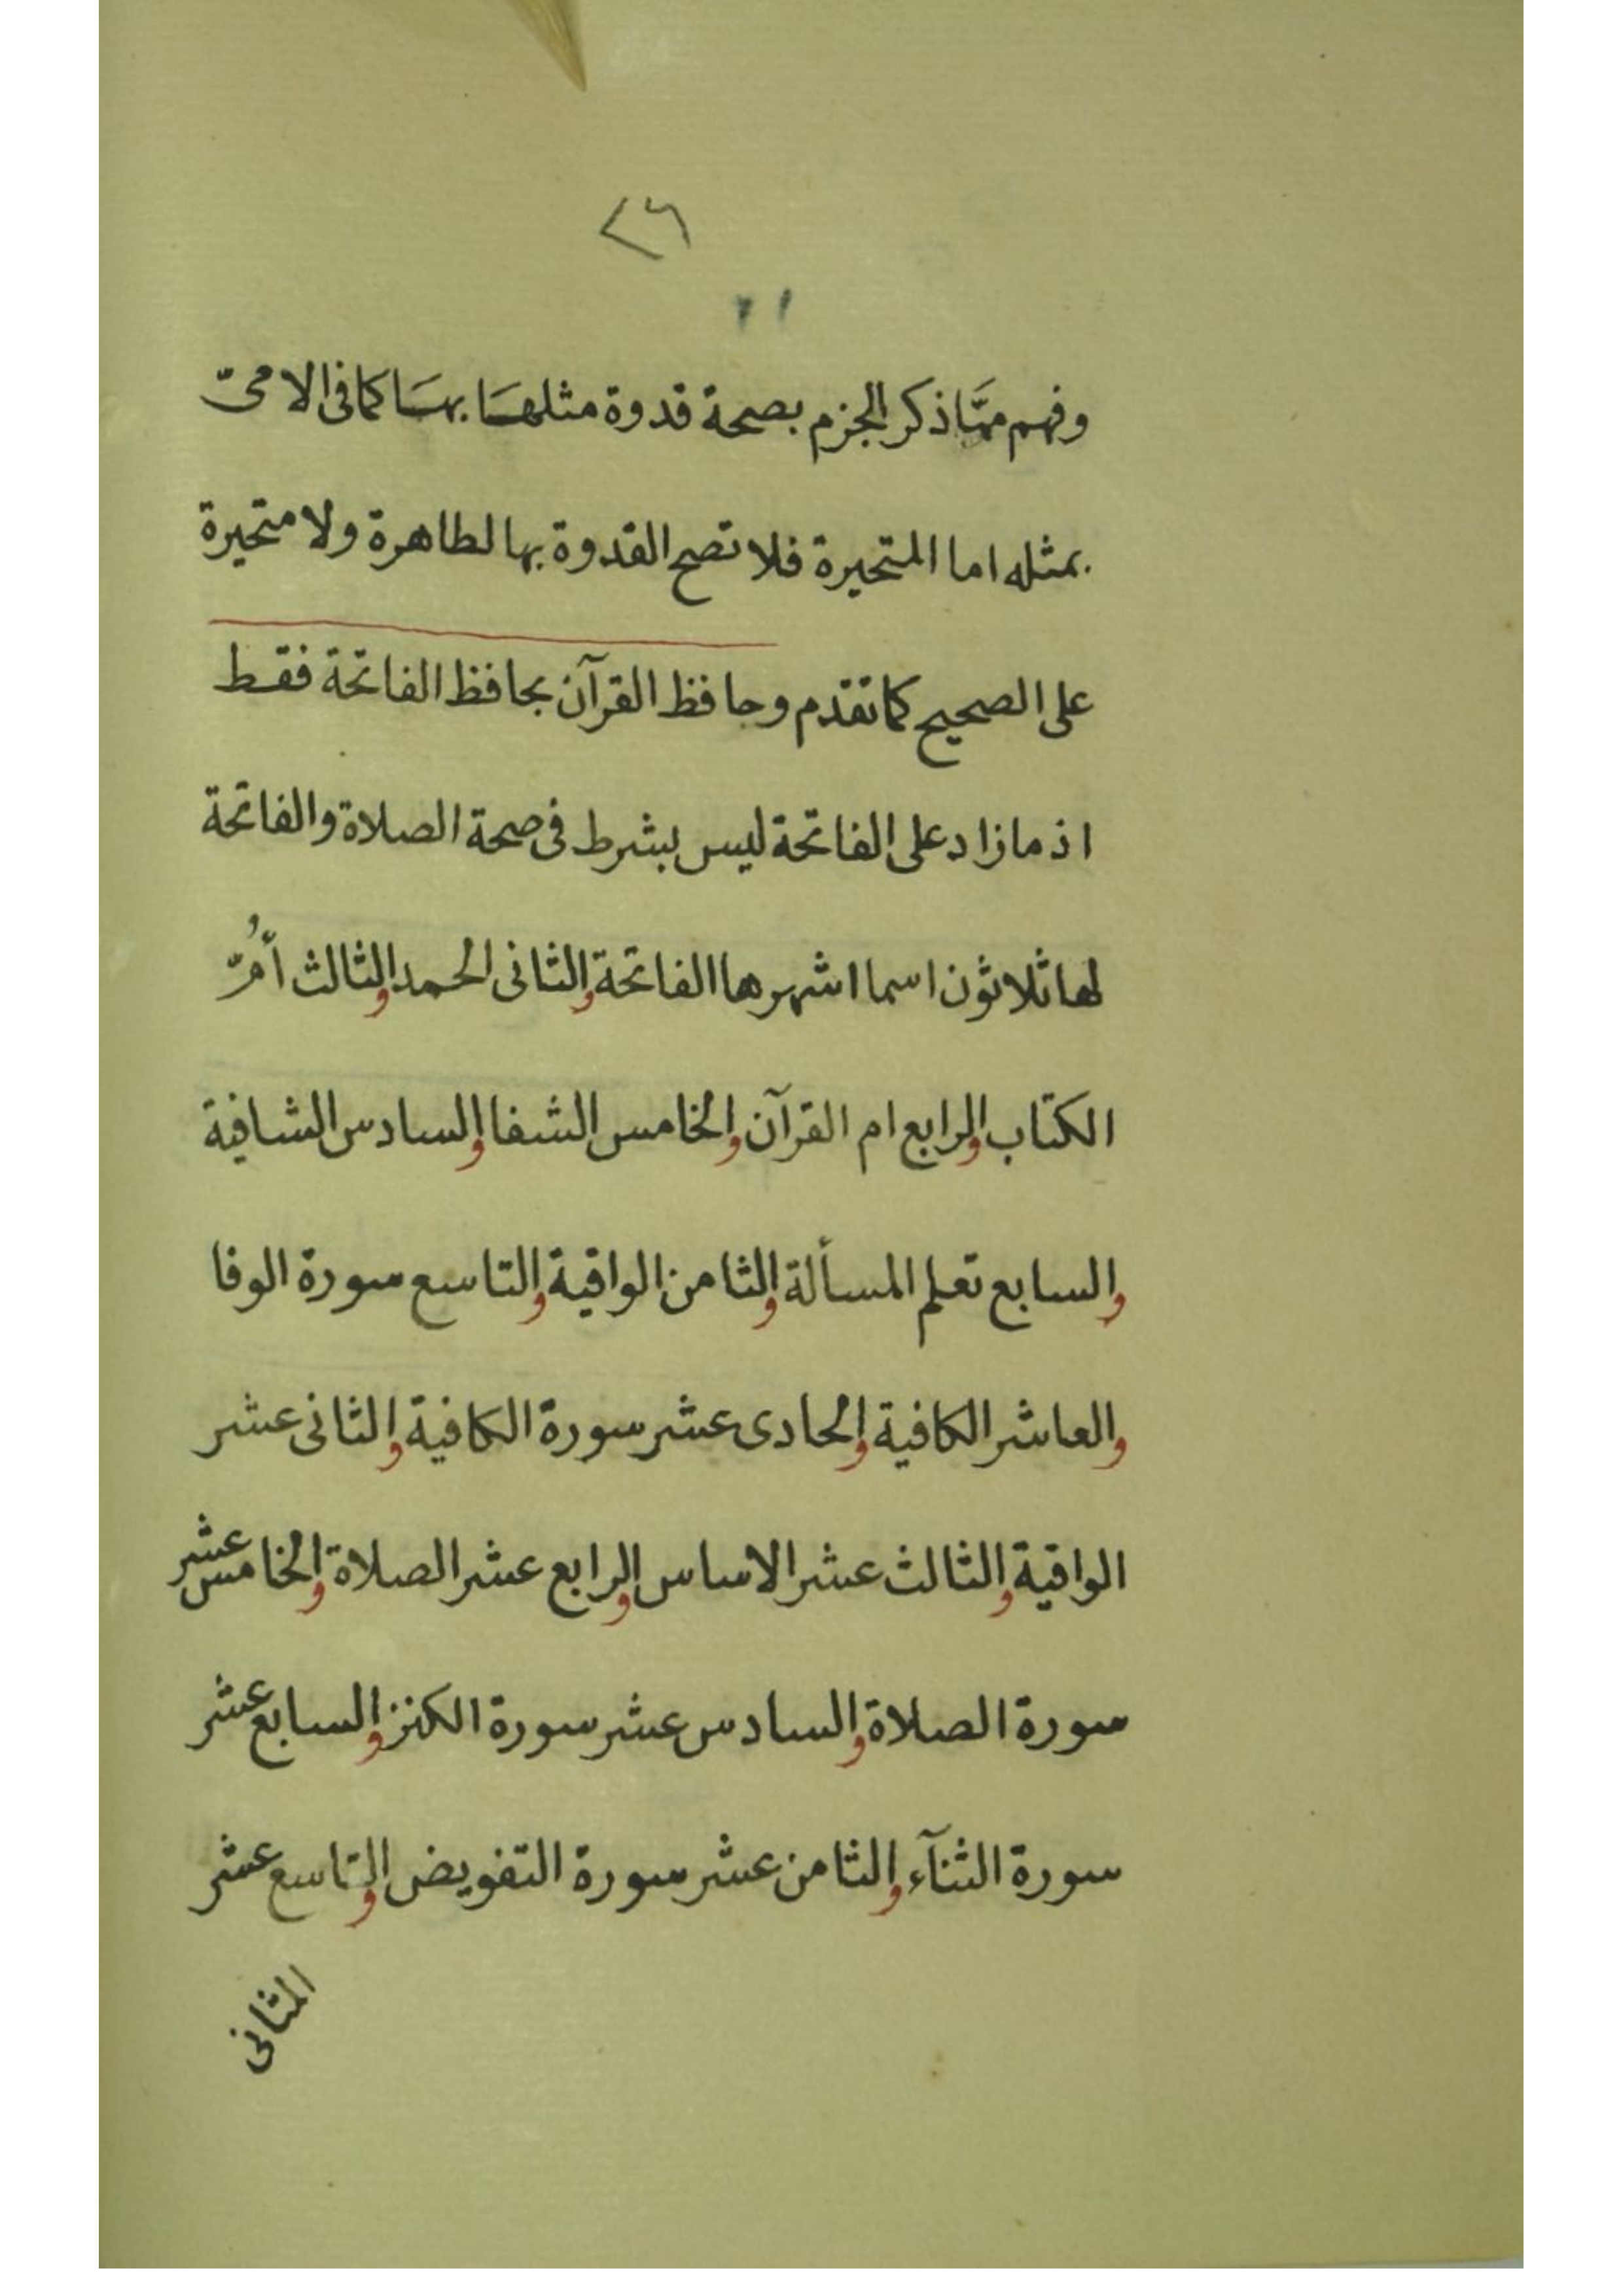 ٢٦
وفهم ممّا ذكر الجزم بصحة قدوة مثلها بها كما فى الامىّ
بمثله اما المتحيرة فلا تصح القدوة بها لطاهرة ولا متحيرة
على الصحيح كما تقدم وحافظ القرآن بحافظ الفاتحة فقط
اذ ما زاد على الفاتحة ليس بشرط فى صحة الصلاة والفاتحة
لها ثلاثون اسما اشهرها الفاتحة والثانى الحمد والثالث أُمّ
الكتاب والرابع ام القرآن والخامس الشفا والسادس الشافية
والسابع تعلم المسألة والثامن الواقية والتاسع سورة الوفا
والعاشر الكافية والحادى عشر سورة الكافية والثانى عشر
الواقية والثالث عشر الاساس والرابع عشر الصلاة والخامس عشر
سورة الصلاة والسادس عشر سورة الكنز والسابع عشر
سورة الثنآء والثامن عشر سورة التفويض والتاسع عشر
المثانى